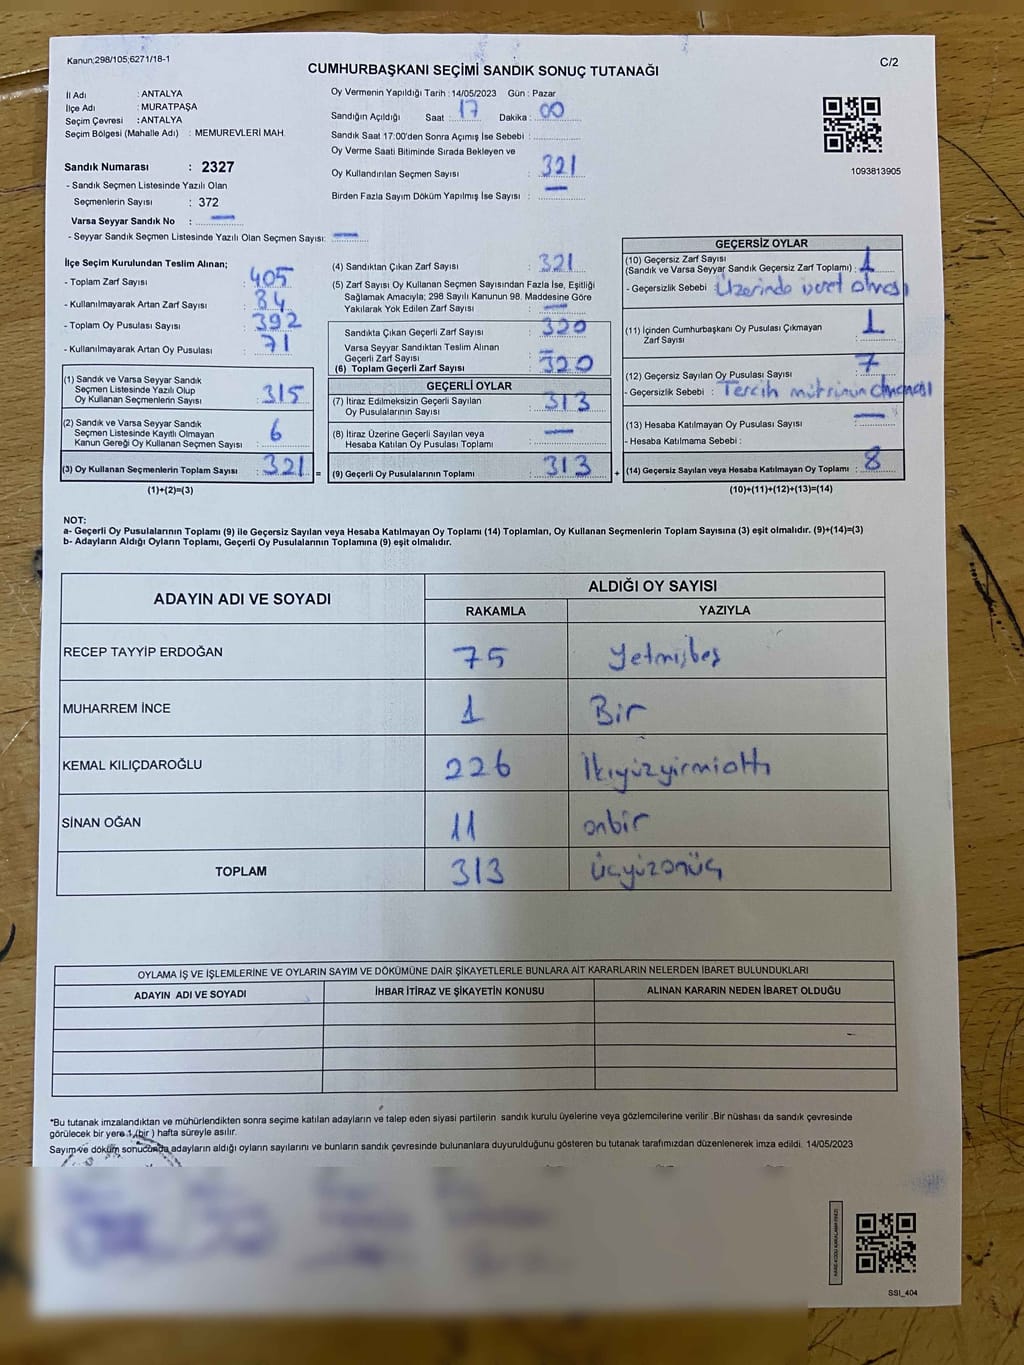 Kanun;298/105;6271/18-1
C/2
CUMHURBAŞKANI SEÇİMİ SANDIK SONUÇ TUTANAĞI
İl Adı : ANTALYA
İlçe Adı : MURATPAŞA
Seçim Çevresi : ANTALYA
Seçim Bölgesi (Mahalle Adı) : MEMUREVLERİ MAH.
Sandık Numarası : 2327
- Sandık Seçmen Listesinde Yazılı Olan
Seçmenlerin Sayısı : 372
Varsa Seyyar Sandık No : —
- Seyyar Sandık Seçmen Listesinde Yazılı Olan Seçmen Sayısı: —
Oy Vermenin Yapıldığı Tarih : 14/05/2023 Gün : Pazar
Sandığın Açıldığı Saat : 17 Dakika : 00
Sandık Saat 17:00'den Sonra Açımış İse Sebebi :
Oy Verme Saati Bitiminde Sırada Bekleyen ve
Oy Kullandırılan Seçmen Sayısı : 321
Birden Fazla Sayım Döküm Yapılmış İse Sayısı : —
1093813905
İlçe Seçim Kurulundan Teslim Alınan;
- Toplam Zarf Sayısı : 405
- Kullanılmayarak Artan Zarf Sayısı : 84
- Toplam Oy Pusulası Sayısı : 392
- Kullanılmayarak Artan Oy Pusulası : 71
(1) Sandık ve Varsa Seyyar Sandık
Seçmen Listesinde Yazılı Olup
Oy Kullanan Seçmenlerin Sayısı : 315
(2) Sandık ve Varsa Seyyar Sandık
Seçmen Listesinde Kayıtlı Olmayan
Kanun Gereği Oy Kullanan Seçmen Sayısı : 6
(3) Oy Kullanan Seçmenlerin Toplam Sayısı : 321 =
(1)+(2)=(3)
(4) Sandıktan Çıkan Zarf Sayısı : 321
(5) Zarf Sayısı Oy Kullanan Seçmen Sayısından Fazla İse, Eşitliği
Sağlamak Amacıyla; 298 Sayılı Kanunun 98. Maddesine Göre
Yakılarak Yok Edilen Zarf Sayısı : —
Sandıkta Çıkan Geçerli Zarf Sayısı : 320
Varsa Seyyar Sandıktan Teslim Alınan
Geçerli Zarf Sayısı : —
(6) Toplam Geçerli Zarf Sayısı : 320
GEÇERLİ OYLAR
(7) İtiraz Edilmeksizin Geçerli Sayılan
Oy Pusulalarının Sayısı : 313
(8) İtiraz Üzerine Geçerli Sayılan veya
Hesaba Katılan Oy Pusulası Toplamı : —
(9) Geçerli Oy Pusulalarının Toplamı : 313 +
GEÇERSİZ OYLAR
(10) Geçersiz Zarf Sayısı
(Sandık ve Varsa Seyyar Sandık Geçersiz Zarf Toplamı) : 1
- Geçersizlik Sebebi : Üzerinde işaret olması
(11) İçinden Cumhurbaşkanı Oy Pusulası Çıkmayan
Zarf Sayısı : 1
(12) Geçersiz Sayılan Oy Pusulası Sayısı : 7
- Geçersizlik Sebebi : Tercih mührünün olmaması
(13) Hesaba Katılmayan Oy Pusulası Sayısı : —
- Hesaba Katılmama Sebebi :
(14) Geçersiz Sayılan veya Hesaba Katılmayan Oy Toplamı : 8
(10)+(11)+(12)+(13)=(14)
NOT:
a- Geçerli Oy Pusulalarının Toplamı (9) ile Geçersiz Sayılan veya Hesaba Katılmayan Oy Toplamı (14) Toplamları, Oy Kullanan Seçmenlerin Toplam Sayısına (3) eşit olmalıdır. (9)+(14)=(3)
b- Adayların Aldığı Oyların Toplamı, Geçerli Oy Pusulalarının Toplamına (9) eşit olmalıdır.
ADAYIN ADI VE SOYADI
ALDIĞI OY SAYISI
RAKAMLA YAZIYLA
RECEP TAYYİP ERDOĞAN 75 Yetmişbeş
MUHARREM İNCE 1 Bir
KEMAL KILIÇDAROĞLU 226 İkiyüzyirmialtı
SİNAN OĞAN 11 onbir
TOPLAM 313 üçyüzonüç
OYLAMA İŞ VE İŞLEMLERİNE VE OYLARIN SAYIM VE DÖKÜMÜNE DAİR ŞİKAYETLERLE BUNLARA AİT KARARLARIN NELERDEN İBARET BULUNDUKLARI
ADAYIN ADI VE SOYADI İHBAR İTİRAZ VE ŞİKAYETİN KONUSU ALINAN KARARIN NEDEN İBARET OLDUĞU
*Bu tutanak imzalandıktan ve mühürlendikten sonra seçime katılan adayların ve talep eden siyasi partilerin sandık kurulu üyelerine veya gözlemcilerine verilir .Bir nüshası da sandık çevresinde
görülecek bir yere 1 (bir ) hafta süreyle asılır.
Sayım ve döküm sonucunda adayların aldığı oyların sayılarını ve bunların sandık çevresinde bulunanlara duyurulduğunu gösteren bu tutanak tarafımızdan düzenlenerek imza edildi. 14/05/2023
SSI_404